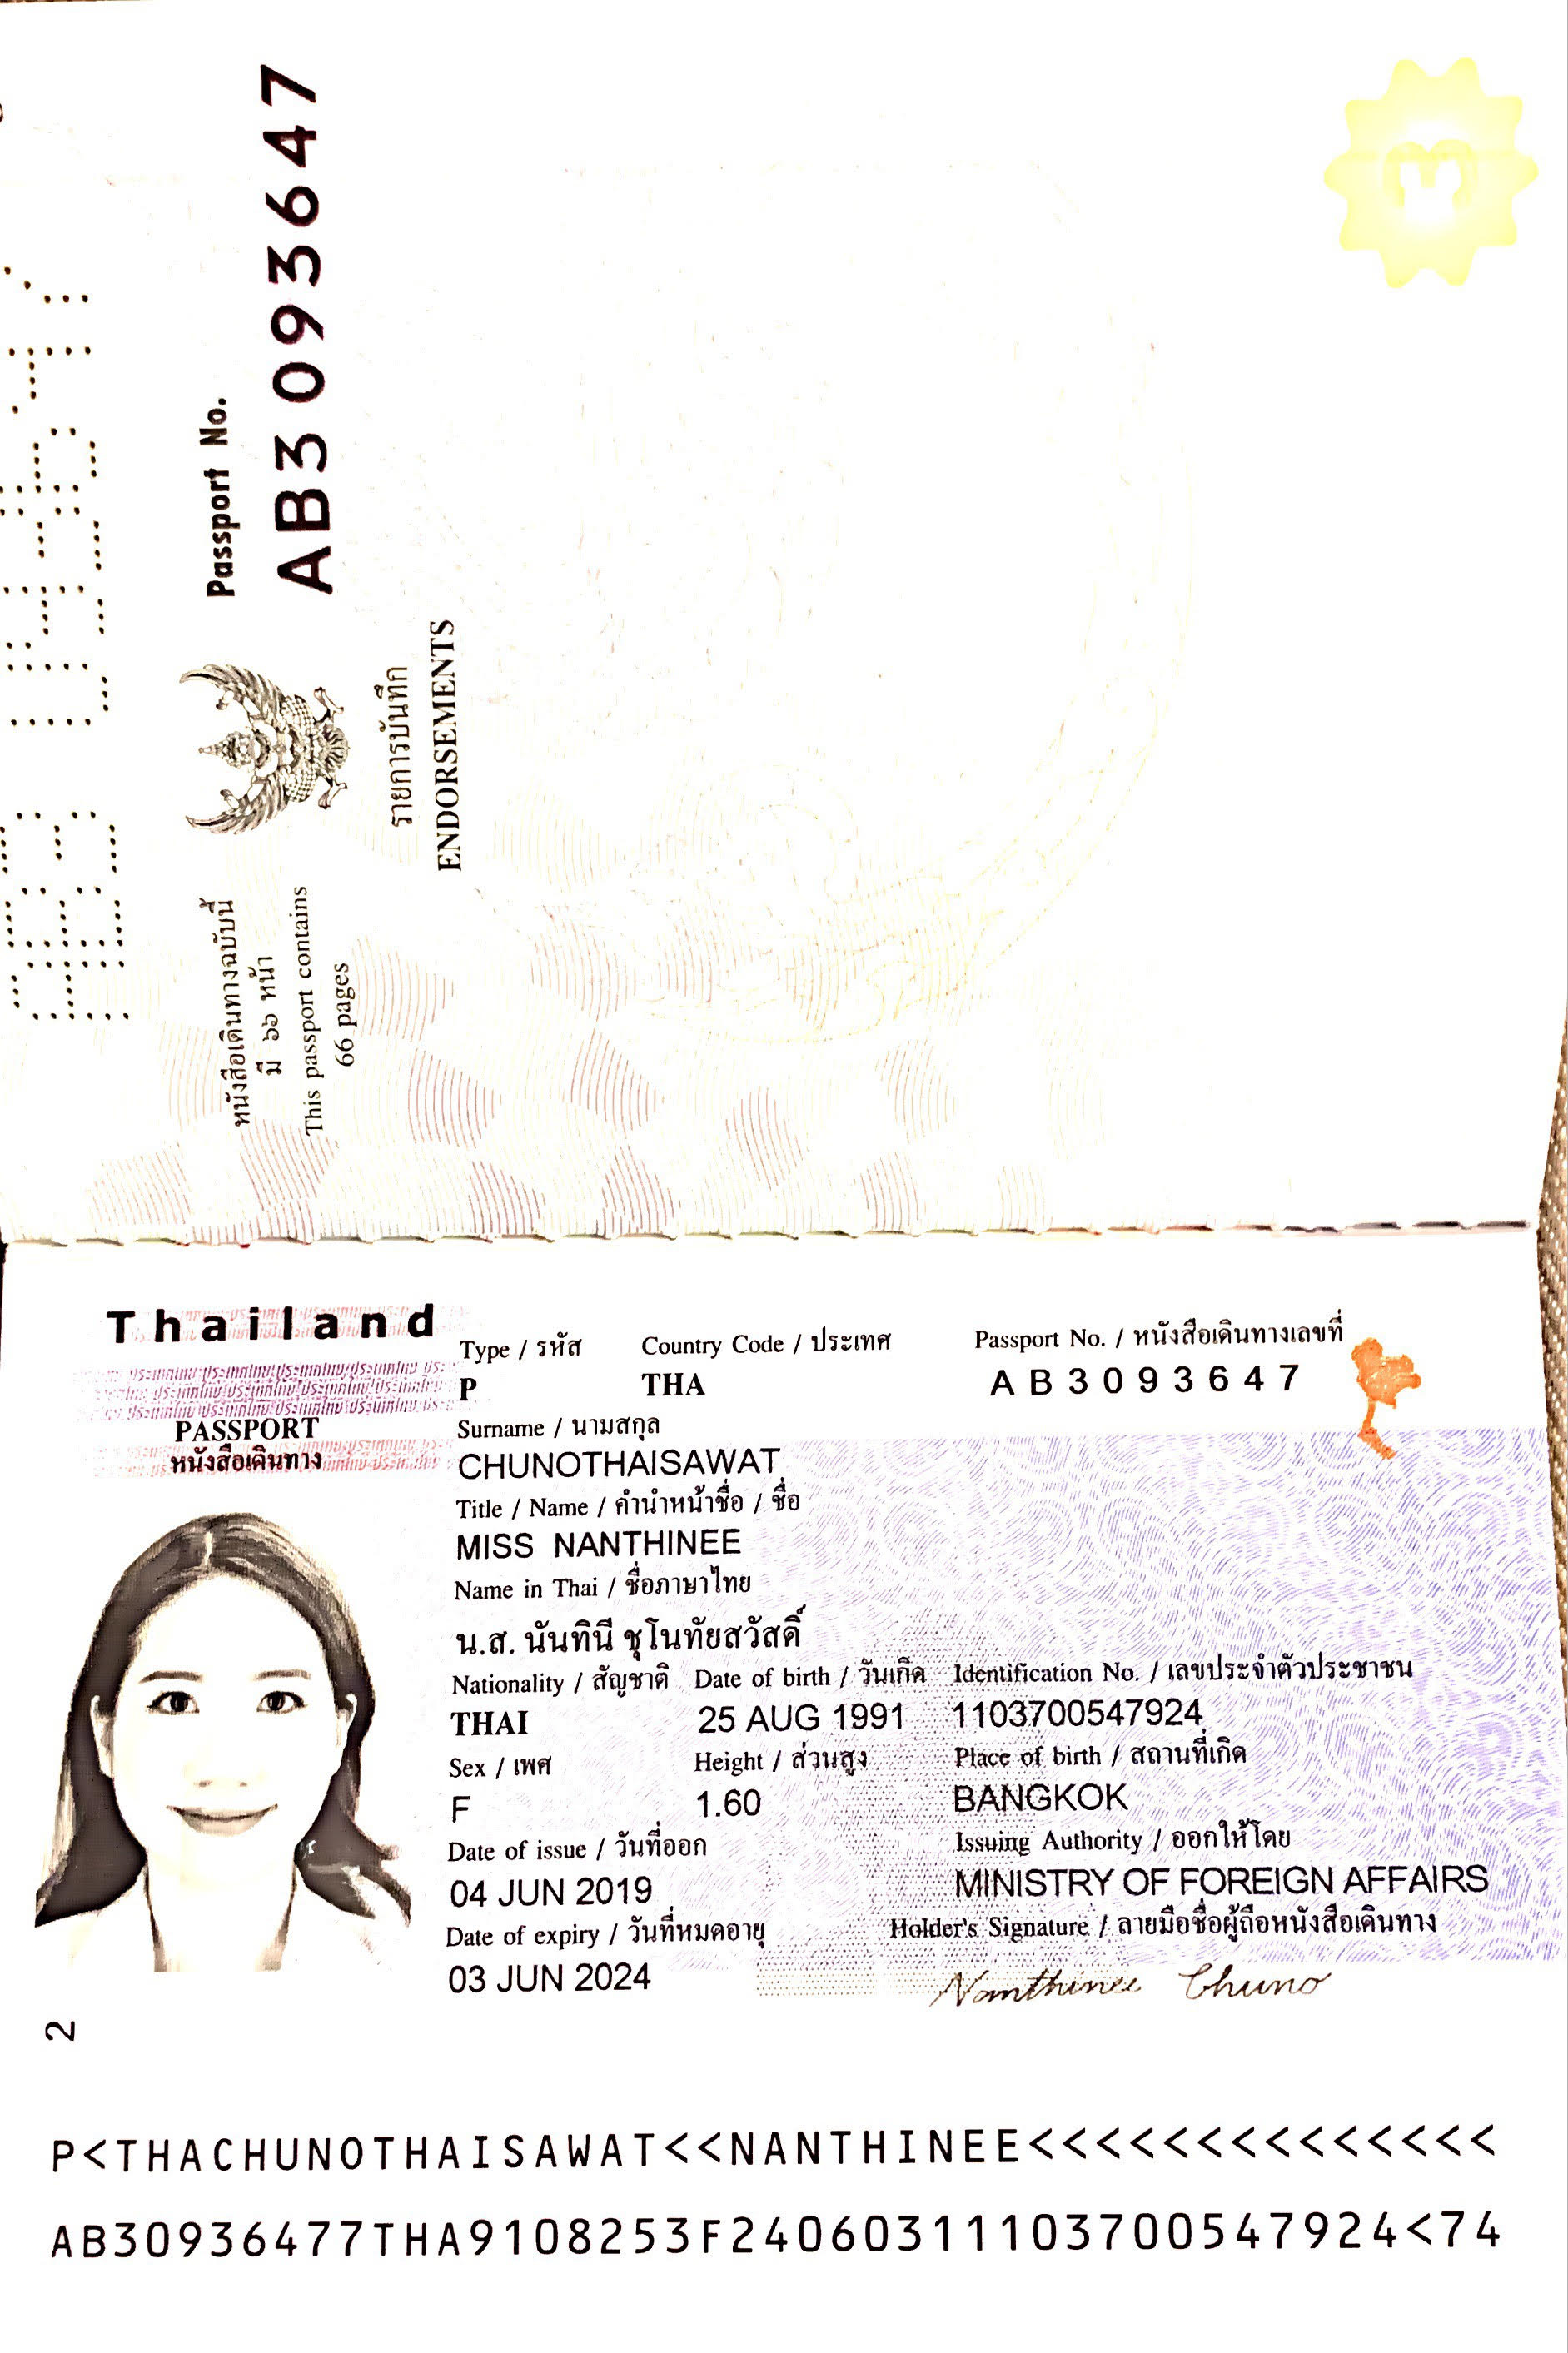 Passport No.
AB3093647
รายการบันทึก
ENDORSEMENTS
หนังสือเดินทางฉบับนี้
มี ๖๖ หน้า
This passport contains
66 pages
3
Thailand
PASSPORT
หนังสือเดินทาง
Type / รหัส Country Code / ประเทศ Passport No. / หนังสือเดินทางเลขที่
P THA AB3093647
Surname / นามสกุล
CHUNOTHAISAWAT
Title / Name / คำนำหน้าชื่อ / ชื่อ
MISS NANTHINEE
Name in Thai / ชื่อภาษาไทย
น.ส. นันทินี ชุโนทัยสวัสดิ์
Nationality / สัญชาติ Date of birth / วันเกิด Identification No. / เลขประจำตัวประชาชน
THAI 25 AUG 1991 1103700547924
Sex / เพศ Height / ส่วนสูง Place of birth / สถานที่เกิด
F 1.60 BANGKOK
Date of issue / วันที่ออก Issuing Authority / ออกให้โดย
04 JUN 2019 MINISTRY OF FOREIGN AFFAIRS
Date of expiry / วันที่หมดอายุ Holder's Signature / ลายมือชื่อผู้ถือหนังสือเดินทาง
03 JUN 2024 Nanthinee Chuno
2
P<THACHUNOTHAISAWAT<<NANTHINEE<<<<<<<<<<<<<<
AB30936477THA9108253F24060311103700547924<74